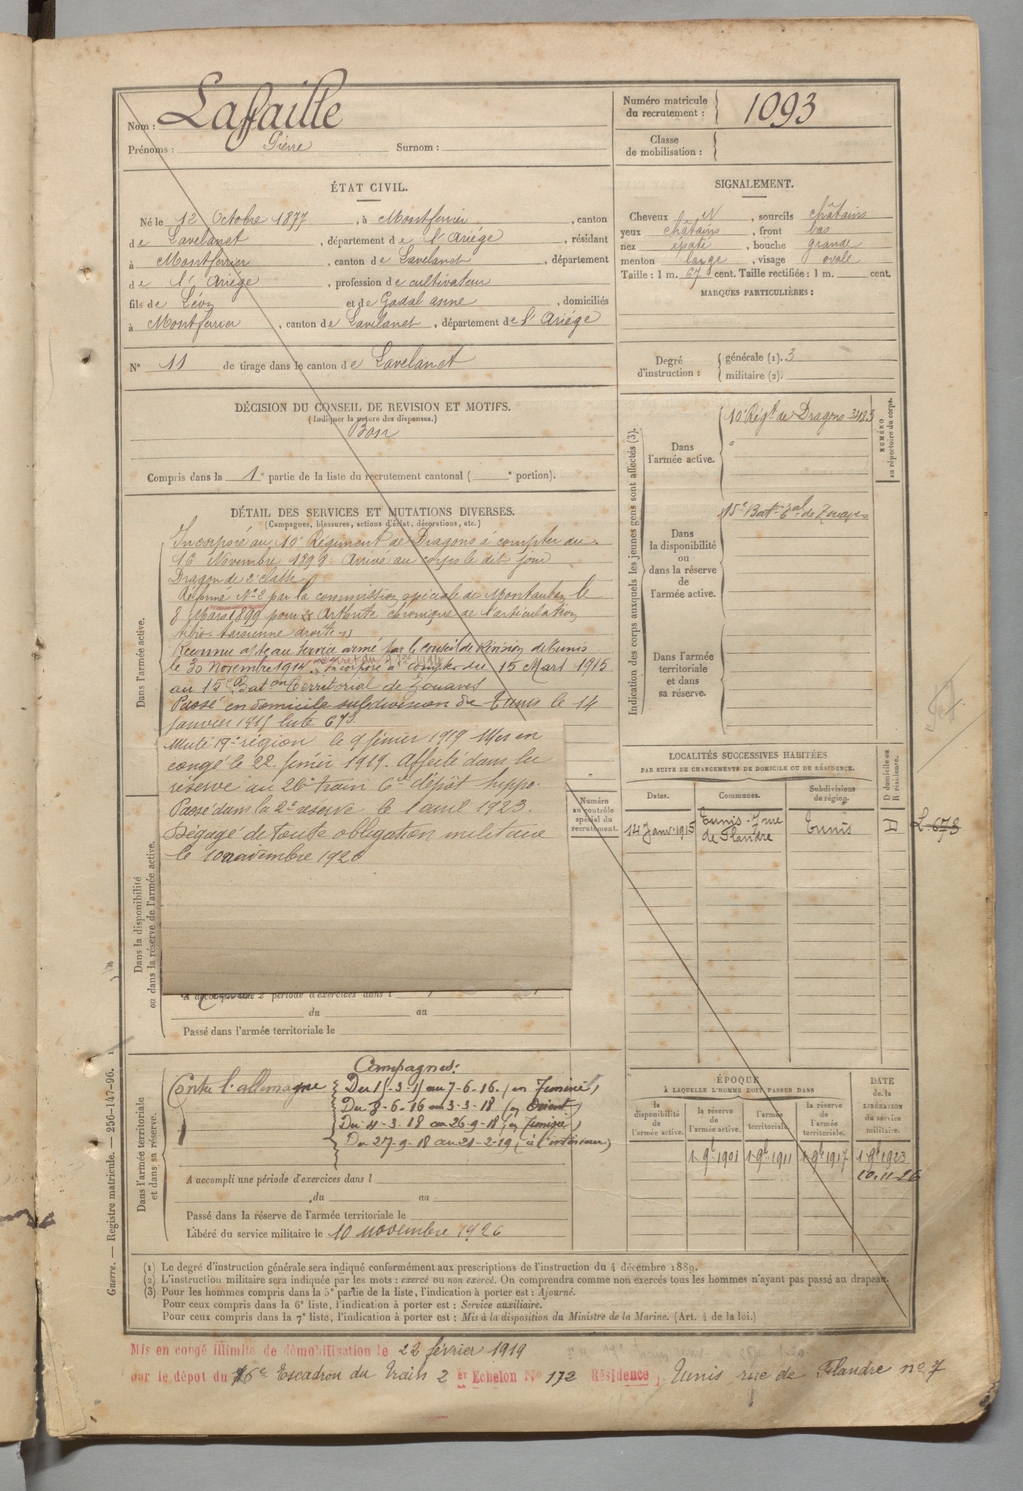 Nom : Laffaille
Prénoms : Pierre Surnom :
Numéro matricule du recrutement : 1093
Classe de mobilisation :
ÉTAT CIVIL.
Né le 12 Octobre 1877, à Montferrier, canton
de Lavelanet, département de l'Ariége, résidant
à Montferrier, canton de Lavelanet, département
de l'Ariége, profession de cultivateur
fils de Léon et de Gadal anne, domiciliés
à Montferrier, canton de Lavelanet, département de l'Ariége
N° 11 de tirage dans le canton de Lavelanet
SIGNALEMENT.
Cheveux N, sourcils châtains
yeux châtains, front bas
nez épaté, bouche grande
menton large, visage ovale
Taille : 1 m. 67 cent. Taille rectifiée : 1 m. cent.
MARQUES PARTICULIÈRES :
Degré d'instruction : générale (1). 3
militaire (2).
DÉCISION DU CONSEIL DE REVISION ET MOTIFS.
(Indiquer la nature des dispenses.)
Bon
Compris dans la 1e partie de la liste du recrutement cantonal ( e portion).
DÉTAIL DES SERVICES ET MUTATIONS DIVERSES.
(Campagnes, blessures, actions d'éclat, décorations, etc.)
Dans l'armée active.
Incorporé au 10e Régiment de Dragons à compter du
16 Novembre 1898 Arrivé au corps le dit jour
Dragon de 2e classe
Réformé N°2 par la commission spéciale de Montauban le
8 Mars 1899 pour Arthrite chronique de l'articulation
tibio tarsienne droite
Reconnu apte au service armé par le Conseil de Révision de Tunis
le 30 Novembre 1914. incorporé à compter du 15 Mars 1915
au 15e Baton Territorial de Zouaves
Passé en domicile subdivision de Tunis le 14
Janvier 1915 liste 673.
Muté 19e région le 9 février 1919 Mis en
congé le 22 février 1919. Affecté dans la
réserve au 26e train 6e dépôt hippo.
Passé dans la 2e réserve le 1 avril 1923.
Dégagé de toute obligation militaire
le 10 novembre 1926
Dans la disponibilité ou dans la réserve de l'armée active.
Numéro au contrôle spécial du recrutement.
du au
Passé dans l'armée territoriale le
Indication des corps auxquels les jeunes gens sont affectés (3).
Dans l'armée active.
10e Régt de Dragons 3483
NUMÉRO au répertoire du corps.
Dans la disponibilité ou dans la réserve de l'armée active.
15e Batn Tal de Zouaves
Dans l'armée territoriale et dans sa réserve.
LOCALITÉS SUCCESSIVES HABITÉES
PAR SUITE DE CHANGEMENTS DE DOMICILE OU DE RÉSIDENCE.
Dates. Communes. Subdivisions de région. D domicile ou R résidence.
14 Janv. 1915 Tunis - 7 rue de Flandre Tunis D L 673
Dans l'armée territoriale et dans sa réserve.
Campagnes:
Contre l'allemagne
Du 15-3-15 au 7-6-16. (en Tunisie)
Du 8-6-16 au 3-3-18 (en Orient)
Du 4-3-18 au 26-9-18 (en Tunisie)
Du 27-9-18 au 21-2-19 (à l'intérieur)
A accompli une période d'exercices dans l
du au
Passé dans la réserve de l'armée territoriale le
Libéré du service militaire le 10 novembre 1926
ÉPOQUE
À LAQUELLE L'HOMME DOIT PASSER DANS
la disponibilité de l'armée active. la réserve de l'armée active. l'armée territoriale. la réserve de l'armée territoriale. DATE de la LIBÉRATION du service militaire.
1 9e 1901 1 9e 1911 1 9e 1917 1 9e 1923
10.11.26
Guerre. — Registre matricule. — 256-147-96.
(1) Le degré d'instruction générale sera indiqué conformément aux prescriptions de l'instruction du 4 décembre 1889.
(2) L'instruction militaire sera indiquée par les mots : exercé ou non exercé. On comprendra comme non exercés tous les hommes n'ayant pas passé au drapeau.
(3) Pour les hommes compris dans la 5e partie de la liste, l'indication à porter est : Ajourné.
Pour ceux compris dans la 6e liste, l'indication à porter est : Service auxiliaire.
Pour ceux compris dans la 7e liste, l'indication à porter est : Mis à la disposition du Ministre de la Marine. (Art. 4 de la loi.)
Mis en congé illimité de démobilisation le 22 février 1919
par le dépot du 16e Escadron du Train 2 er Echelon N° 172 Résidence, Tunis rue de Flandre n° 7